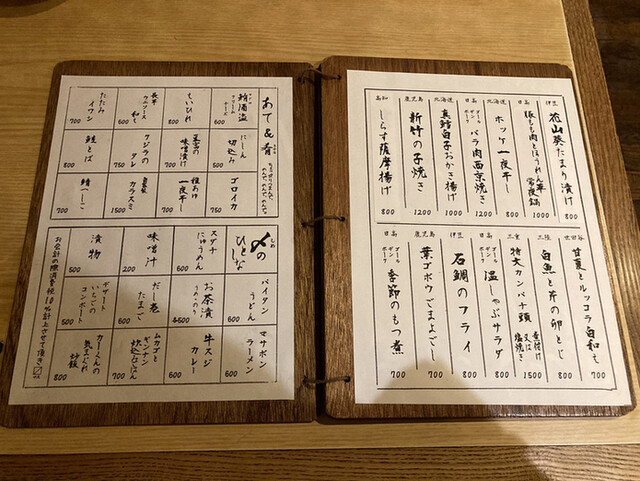 伊豆 花山葵たまり漬け 800
日高 豚もも肉とほうれん草 常夜鍋 1000
北海道 ホッケ一夜干し 800
日高 ゴールデンポーク バラ肉西京焼き 1200
北海道 真鱈白子おかき揚げ 1000
鹿児島 新竹の子焼き 1200
高知 しらす薩摩揚げ 800
世田谷 甘夏とルッコラ白和え 700
三陸 白魚と芹の卵とじ 800
三重 特大カンパチ頭 煮付け又は塩焼き 1500
日高 ゴールデンポーク 温しゃぶサラダ 800
伊豆 石鯛のフライ 800
鹿児島 葉ゴボウごまよごし 700
日高 ゴールデンポーク 季節のもつ煮 700
あて&肴
鮪酒盗 クリームチーズ 600
ちいひれ 800
長芋 ワニソース和え 600
たたみイワシ 700
にしん切込み 500
豆富の味噌漬け 700
クジラのタレ 750
鮭とば 800
ゴロイカ 650
粗おけ 一夜干し 700
自家製 カラスミ 1500
鯖へしこ 700
〆のひとしな
スダチにゅうめん 600
味噌汁 200
漬物 500
バイタンうどん 600
お茶漬 500
だし巻たまご 500
デザート いちごのコンポート 500
マサボンラーメン 600
牛スジカレー 800
ムカゴとギンナン 炊込ごはん 500
カーくんの気まぐれ炒飯 800
お会計の際消費税10%計上させて頂き〼